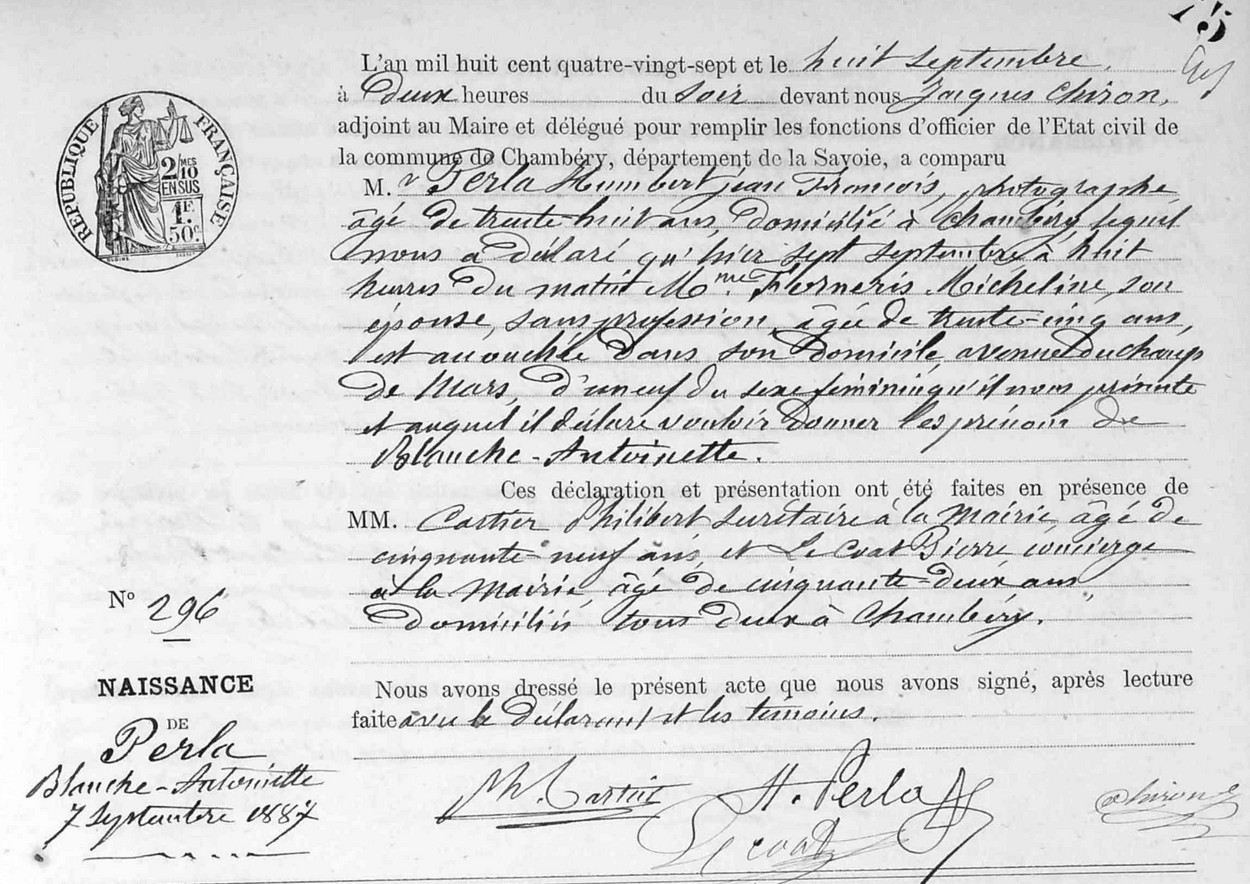 75
L'an mil huit cent quatre-vingt-sept et le huit septembre
à Deux heures du Soir devant nous Jacques Chiron,
adjoint au Maire et délégué pour remplir les fonctions d'officier de l'Etat civil de
la commune de Chambéry, département de la Savoie, a comparu
M. r Perla Humbert jean François, photographe
âgé de trente huit ans, domicilié à Chambéry lequel
nous a déclaré qu'hier sept septembre à huit
heures du matin Mme Ferneris Micheline, son
epouse, sans profession, âgée de trente-cinq ans,
est accouchée dans son domicile, avenue du champ
de Mars d'un enf du sexe feminin qu'il nous présente
et auquel il déclare vouloir donner les prénoms de
Blanche-Antoinette.
Ces déclaration et présentation ont été faites en présence de
MM. Cartier Philibert secrétaire à la Mairie, âgé de
cinquante-neuf ans, et Le Coat Pierre concierge
à la Mairie âgé de cinquante-deux ans
domiciliés tous deux à Chambéry.
Nous avons dressé le présent acte que nous avons signé, après lecture
faite avec le déclarant et les témoins.
RÉPUBLIQUE FRANÇAISE
2/10 MES
EN SUS
1F
50c
No 296
NAISSANCE
DE
Perla
Blanche-Antoinette
7 Septembre 1887
Ph. Cartier
H. Perla
Chiron
Le coat